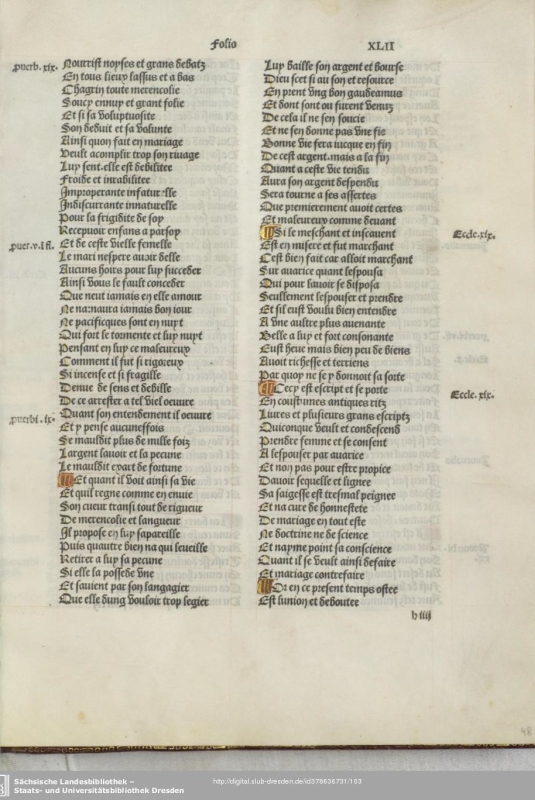 Folio XLII
puerb. xix.
Nourrist noyses et grans debatz
En tous lieux lassus et a bas
Chagrin toute merencolie
Soucy ennuy et grant folie
Et si sa voluptuosite
Son deduit et sa volunte
Ainsi quon fait en mariage
Veult acomplir trop son viuage
Luy sent.elle est debilitee
Froide et inrabilitee
Improperante infatur elle
Indiscurrante innaturelle
Pour la frigidite de soy
Recepuoir enfans a parsoy
puer.v.i st.
Et de ceste vielle femelle
Le mari nespere auoir delle
Aucuns hoirs pour luy succeder
Ainsi vous le fault conceder
Que neut iamais en elle amour
Ne na:naura iamais bon iour
Ne pacificques sont en nuyt
Qui fort le tormente et luy nuyt
Pensant en luy ce maleureux
Comment il fut si rigoreux
Si incense et si fragille
Denue de sens et debille
De ce arrester a tel viel oeuure
puerbi. ix.
Quant son entendement il oeuure
Et y pense aucuneffois
Se mauldit plus de mille foiz
Largent lauoir et la pecune
Le mauldit exart de fortune
Et quant il voit ainsi sa vie
Et quil regne comme en enuie
Son cueur transi tout de rigueur
De merencolie et langueur
Il propose en luy sapareille
Puis quautre bien na qui leueille
Retirer a luy sa pecune
Si elle la possede vne
Et sauient par son langagier
Que elle dung vouloir trop legier
Luy baille son argent et bourse
Dieu scet si au son et resource
En prent vng bon gaudeamus
Et dont sont ou furent venuz
De cela il ne sen soucie
Et ne sen donne pas vne sie
Bonne vie fera iucque en fin
De cest argent.mais a la fin
Quant a ceste vie tendu
Aura son argent despendu
Sera tourne a ses assertes
Que premierement auoit certes
Et maleureux comme deuant
Eccle.xix.
Si le meschant et inscauent
Est en misere et fut marchant
Cest bien fait car alloit marchant
Sur auarice quant lespousa
Qui pour lauoir se disposa
Seullement lespouser et prendre
Et sil eust voulu bien entendre
A vne aultre plus auenante
Belle a luy et fort consonante
Eust heue mais bien peu de biens
Auoit richesse et terriens
Par quoy ne se y donnoit sa sorte
Eccle. xix.
Cecy est escript et se porte
En coustumes antiques ritz
Liures et plusieurs grans escriptz
Quiconque veult et condescend
Prendre femme et se consent
A lespouser par auarice
Et non pas pour estre propice
Dauoir sequelle et lignee
Sa saigesse est tresmal peignee
Et na cure de honnestete
De mariage en tout este
Ne doctrine ne de science
Et nayme point sa conscience
Quant il se veult ainsi desaire
Et mariage contrefaire
Or en ce present temps ostee
Est lunion et deboutee
h iiii
48
Sächsische Landesbibliothek –
Staats- und Universitätsbibliothek Dresden
http://digital.slub-dresden.de/id378636731/103